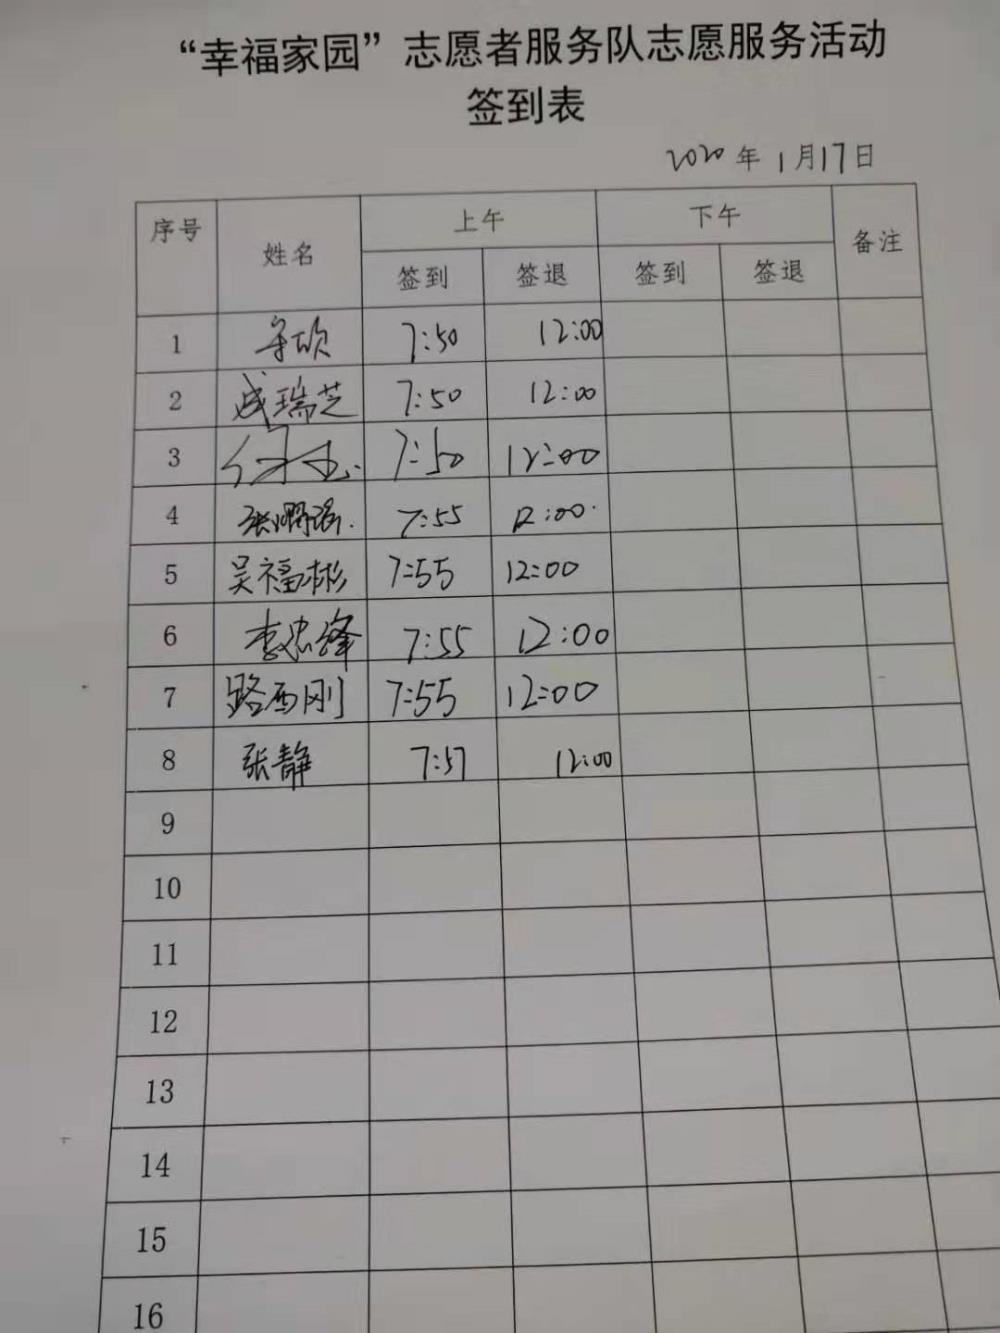 “幸福家园”志愿者服务队志愿服务活动
签到表
2020年1月17日
序号 姓名 上午 下午 备注
签到 签退 签到 签退
1 7:50 12:00
2 成瑞芝 7:50 12:00
3 7:50 12:00
4 张 7:55 12:00
5 吴福彬 7:55 12:00
6 李忠锋 7:55 12:00
7 路西刚 7:55 12:00
8 张静 7:57 12:00
9
10
11
12
13
14
15
16